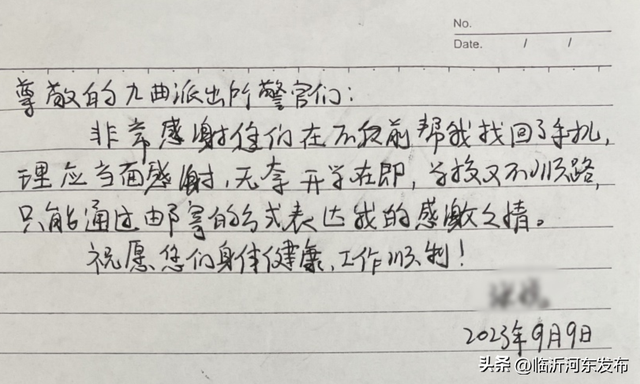 No.
Date. / /
尊敬的九曲派出所警官们：
非常感谢您们在不久前帮我找回了手机，
理应当面感谢，无奈开学在即，学校又不顺路，
只能通过邮寄的方式表达我的感激之情。
祝愿您们身体健康，工作顺利！
2023年9月9日
头条 @临沂河东发布